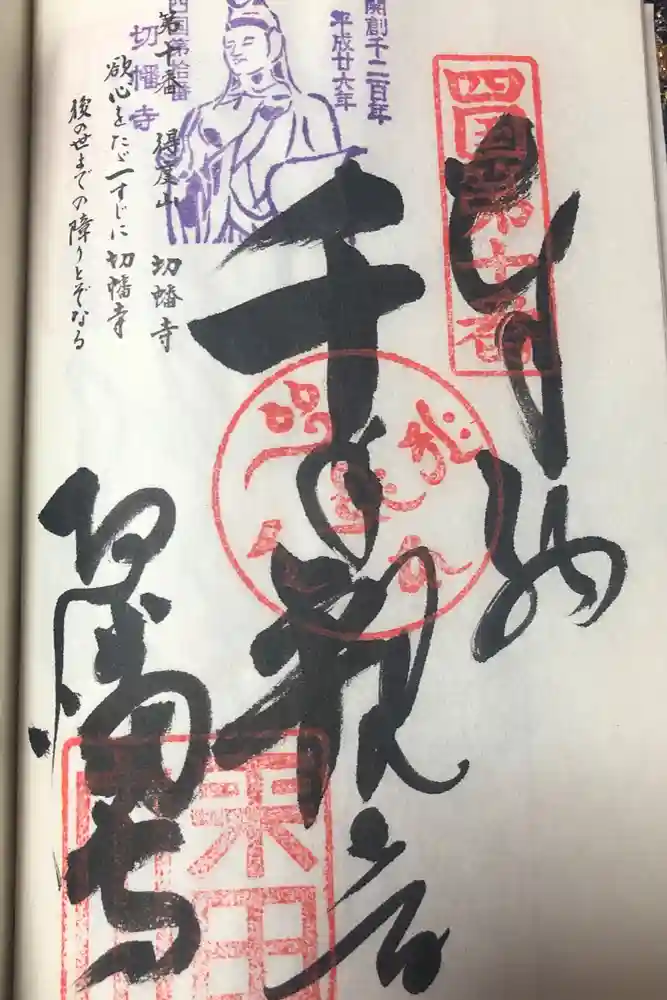 奉納
四国第十番
千手観音
切幡寺
開創千二百年
平成廿六年
四国第拾番
切幡寺
第十番 得度山 切幡寺
欲心をたゞ一すじに切幡寺
後の世までの障りとぞなる